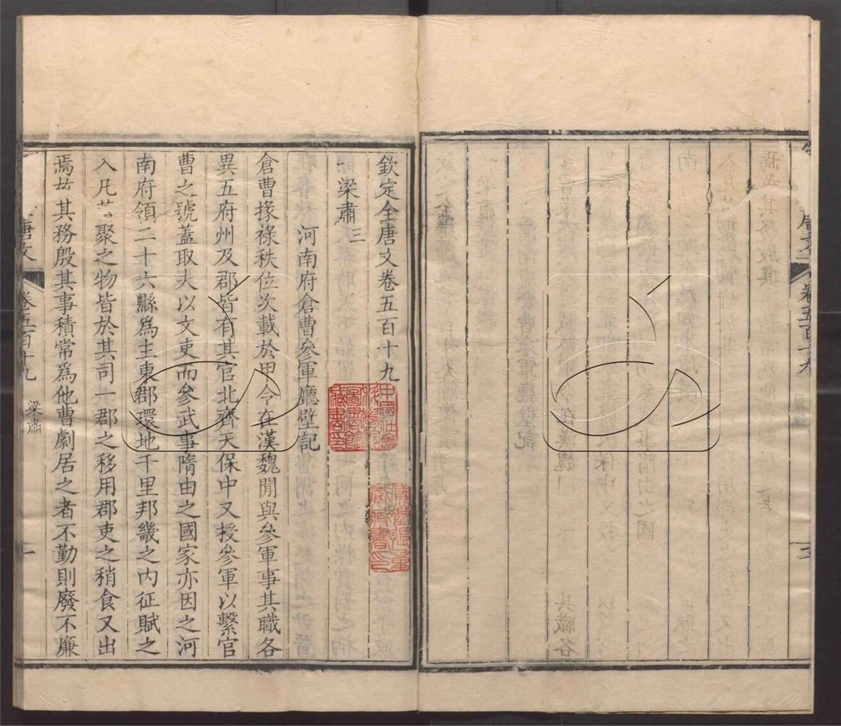 欽定全唐文卷五百十九
梁肅三
河南府倉曹參軍廳壁記
倉曹掾祿秩位次載於甲令在漢魏閒與參軍事其職各
異五府州及郡皆有其官北齊天保中又授參軍以繫官
曹之號蓋取夫以文吏而參武事隋由之國家亦因之河
南府領二十六縣為主東郡環地千里邦畿之內征賦之
入凡 聚之物皆於其司一郡之移用郡吏之稍食又出
焉故其務殷其事積常為他曹劇居之者不勤則廢不廉
唐文
卷五百十九
梁肅
一